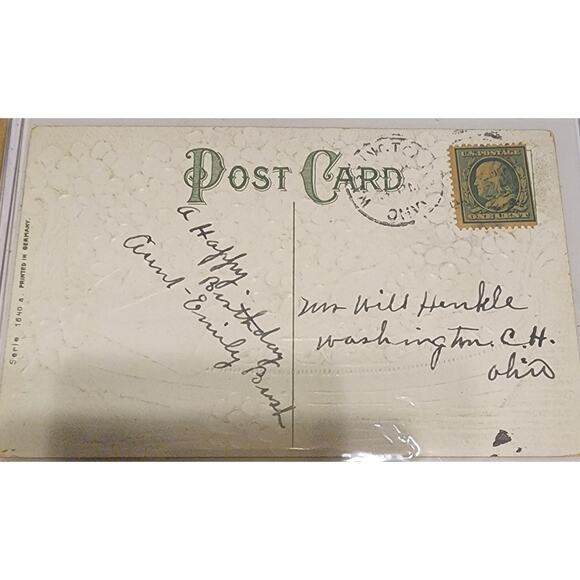 POST CARD
U.S. POSTAGE
ONE CENT
A Happy
Birthday
Aunt Emily Bush
Mr Will Henkle
Washington. C.H.
Ohio
Serie 1640 a. PRINTED IN GERMANY.